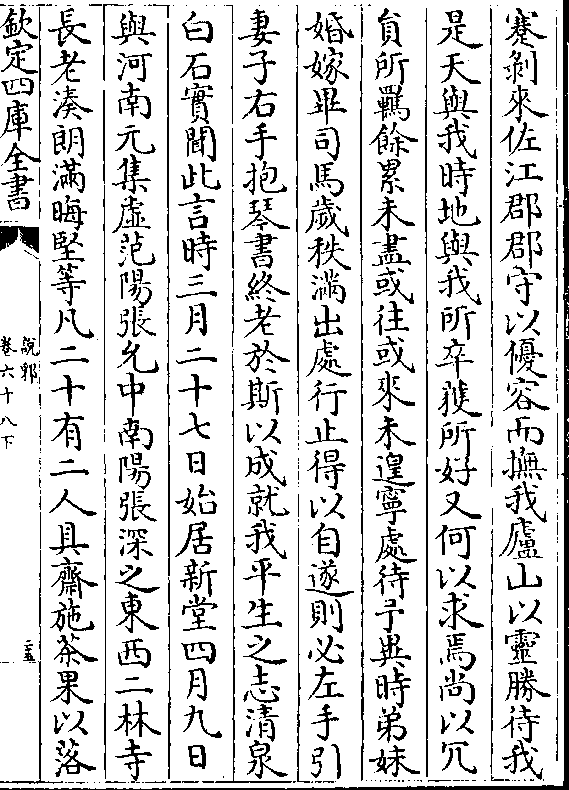 蹇剝來佐江郡郡守以優容而撫我廬山以靈勝待我
是天與我時地與我所卒獲所好又何以求焉尚以冗
負所羈餘累未盡或往或來未遑寧處待予異時弟妹
婚嫁畢司馬歲秩滿出處行止得以自遂則必左手引
妻子右手抱琴書終老於斯以成就我平生之志清泉
白石實聞此言時三月二十七日始居新堂四月九日
與河南元集虛范陽張允中南陽張深之東西二林寺
長老湊朗滿晦堅等凡二十有二人具齋施茶果以落
欽定四庫全書
說郛
卷六十八下
三五